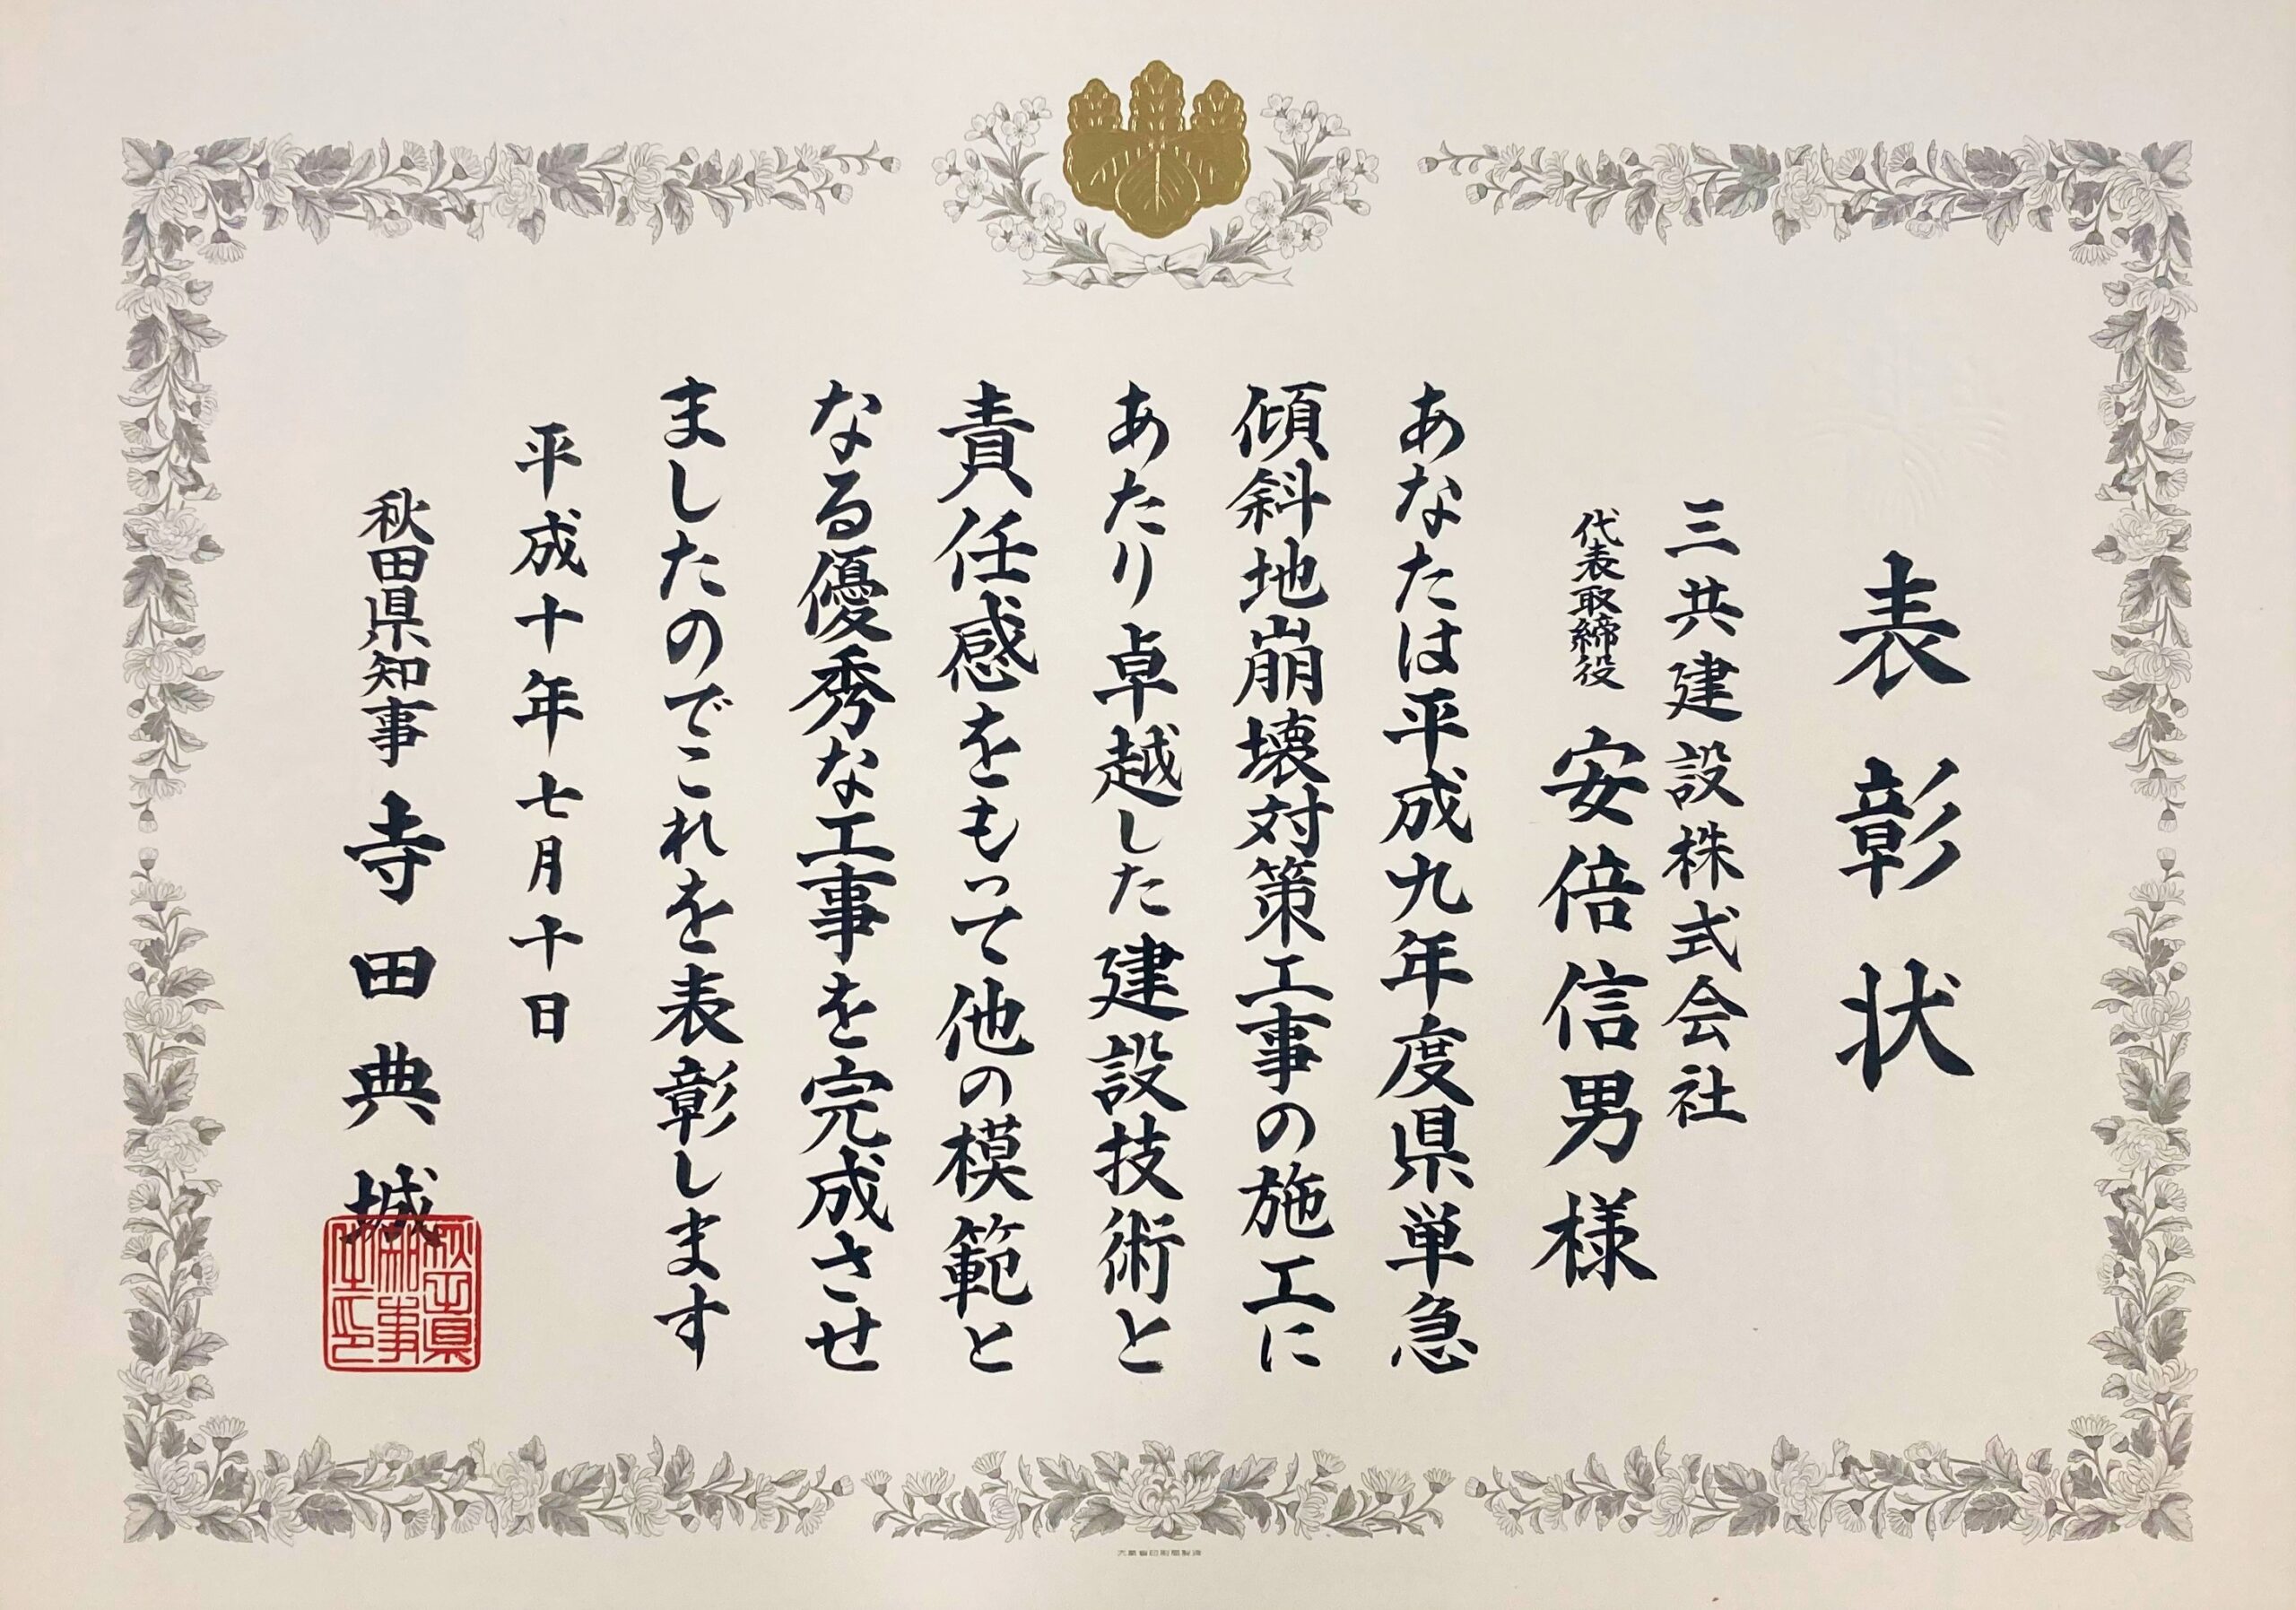 表彰状
三共建設株式会社
代表取締役 安倍信男様
あなたは平成九年度県単急
傾斜地崩壊対策工事の施工に
あたり卓越した建設技術と
責任感をもって他の模範と
なる優秀な工事を完成させ
ましたのでこれを表彰します
平成十年七月十日
秋田県知事 寺田典城
秋田県知事之印
大蔵省印刷局製造